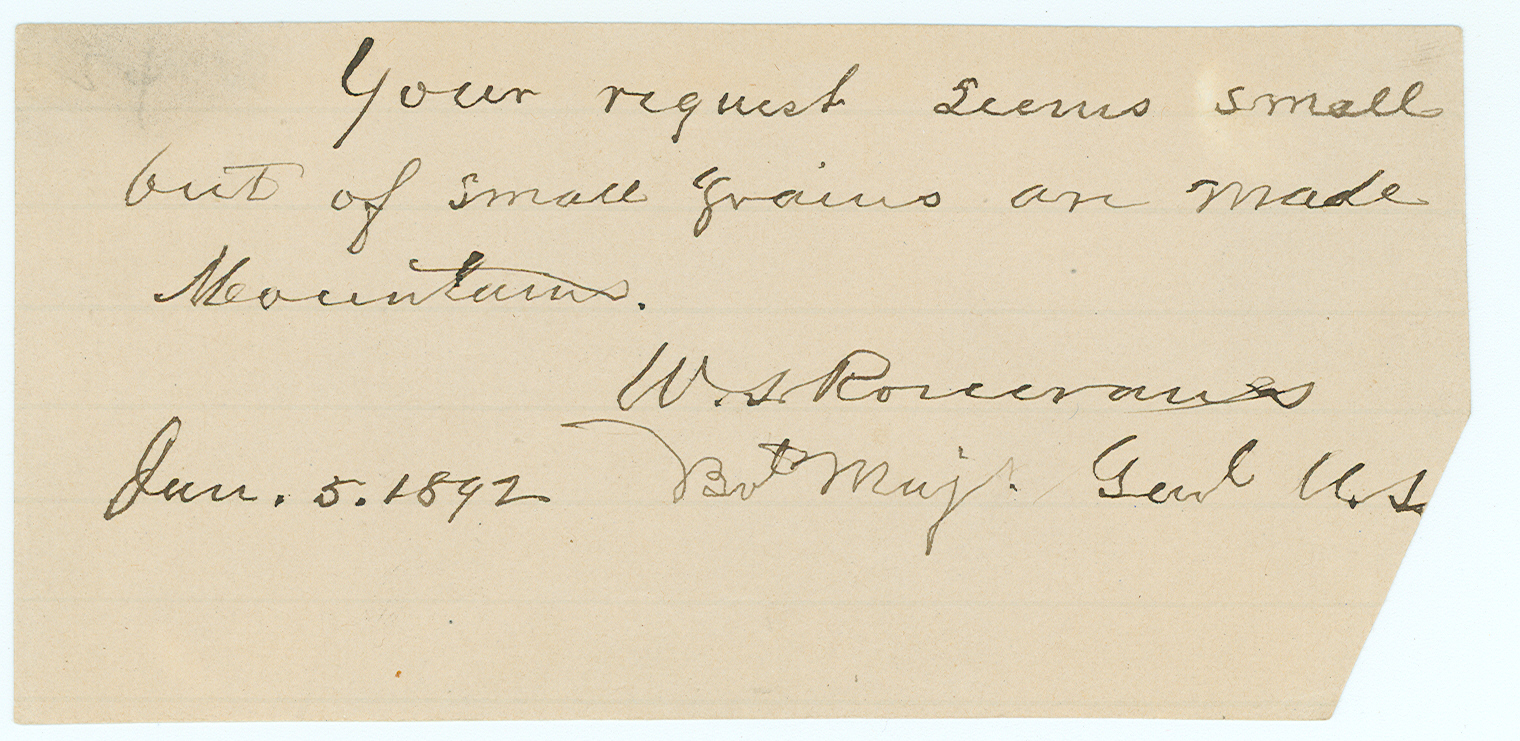 Your request seems small
but of small grains are made
Mountains.
W. S. Rosecrans
Jan. 5. 1892 Bvt Maj. Genl U.S.